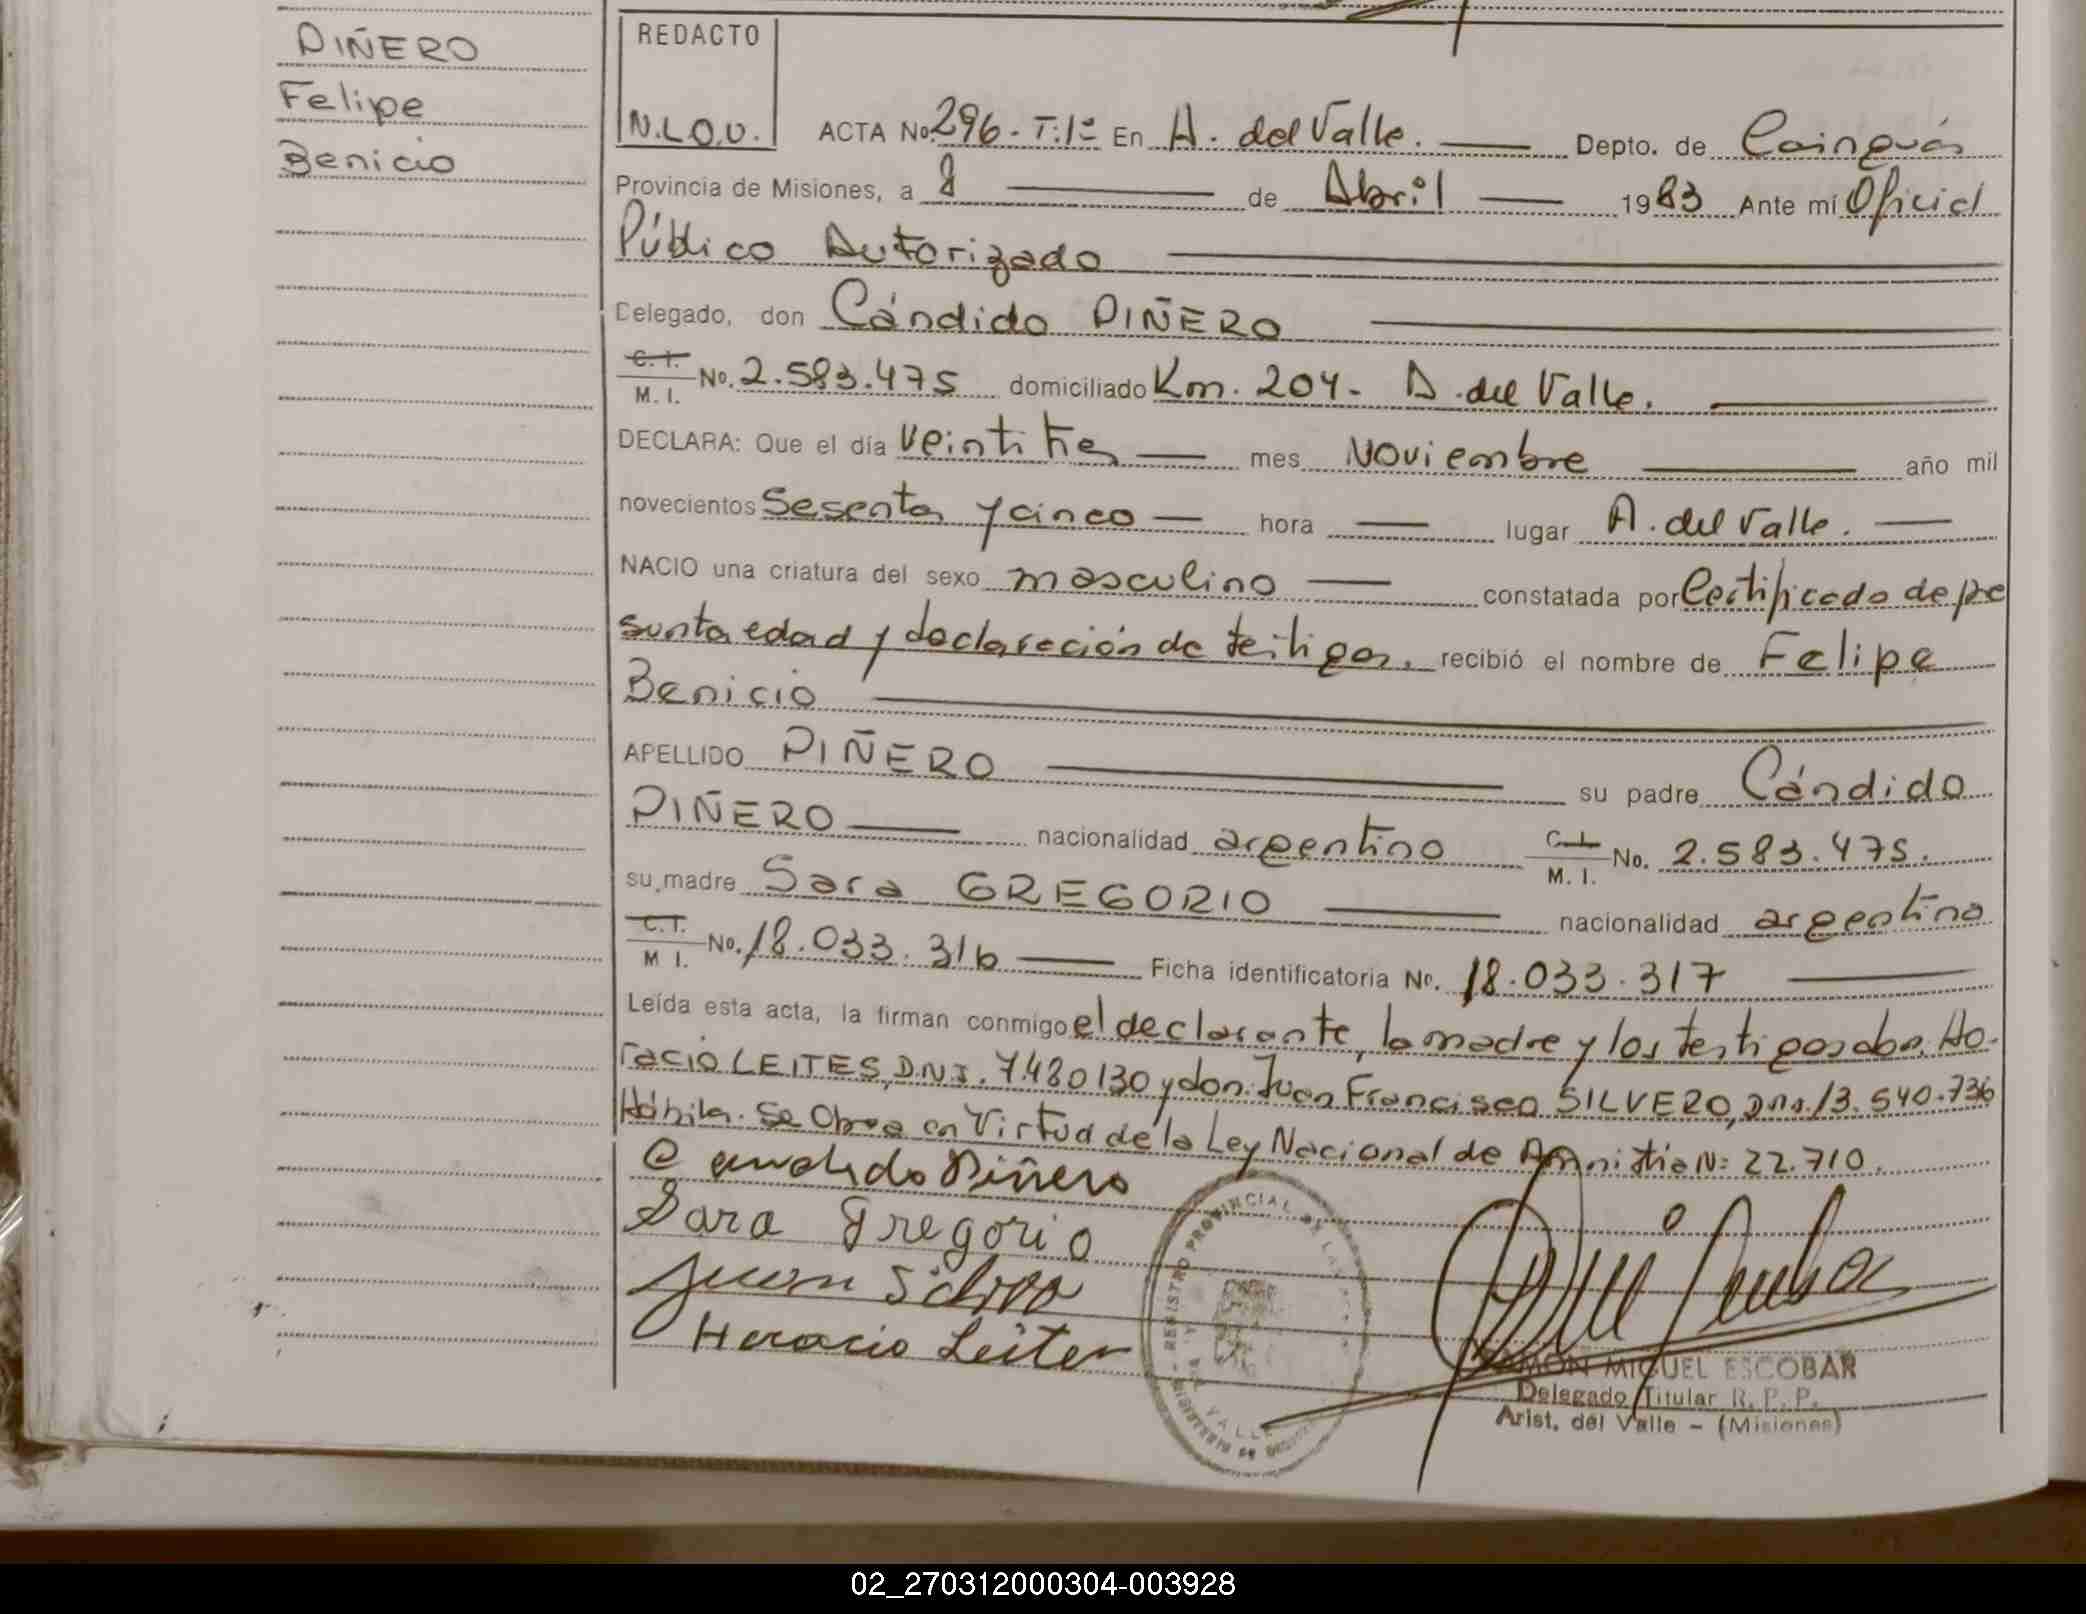 PIÑERO
Felipe
Benicio
REDACTO
N.L.O.V.
ACTA No. 296 - T: 1º En A. del Valle. Depto. de Cainguás
Provincia de Misiones, a 8 de Abril 1983 Ante mí Oficial
Público Autorizado
Delegado, don Cándido PIÑERO
C.I. M. I. No. 2.583.475 domiciliado Km. 204 - A. del Valle.
DECLARA: Que el día veintitres mes Noviembre año mil
novecientos Sesenta y cinco hora lugar A. del Valle.
NACIO una criatura del sexo masculino constatada por Certificado de pre
sunta edad y declaración de testigos. recibió el nombre de Felipe
Benicio
APELLIDO PIÑERO su padre Cándido
PIÑERO nacionalidad argentino C.I. M. I. No. 2.583.475.
su madre Sara GREGORIO nacionalidad argentina
C.I. M I. No. 18.033.316 Ficha identificatoria No. 18.033.317
Leída esta acta, la firman conmigo el declarante, la madre y los testigos don Ho-
racio LEITES, D.N.I. 7.480130 y don: Juan Francisco SILVERO, DNI. 13.540.736
Hábiles. Se Obra en Virtud de la Ley Nacional de Amnistia Nº 22.710.
Candido Piñero
Sara Gregorio
Juan Silvero
Horacio Leites
REGISTRO PROVINCIAL DE LAS
VALLE
RAMON MIGUEL ESCOBAR
Delegado Titular R. P. P.
Arist. del Valle - (Misiones)
02_270312000304-003928